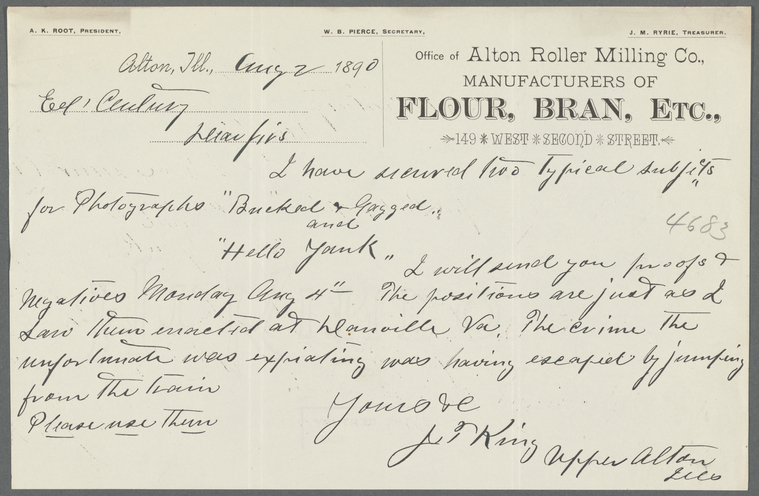 A. K. ROOT, PRESIDENT. W. B. PIERCE, SECRETARY, J. M. RYRIE, TREASURER.
Office of Alton Roller Milling Co.,
MANUFACTURERS OF
FLOUR, BRAN, ETC.,
149 WEST SECOND STREET.
Alton, Ill., Aug 2 1890
Ed' Century
Dear Sirs
I have secured two typical subjects
for Photographs "Bucked & Gagged"
and
"Hello Yank"
4683
I will send you proofs &
Negatives Monday Aug 4th The positions are just as I
Saw them enacted at Danville Va. The crime the
unfortunate was expiating was having escaped by jumping
from the train
Please use them
Yours &c
J T King
Upper Alton
Ills